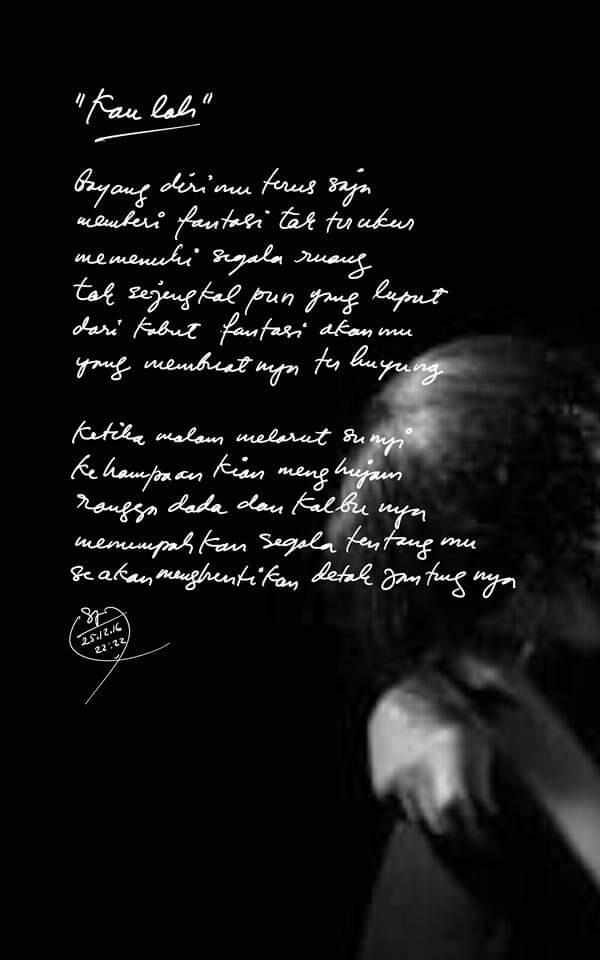 "Kau lah"
bayang dirimu terus saja
memberi fantasi tak terukur
memenuhi segala ruang
tak sejengkal pun yang luput
dari kabut fantasi akanmu
yang membuatnya terhuyung
Ketika malam melarut sunyi
kehampaan kian menghujam
rongga dada dan kalbunya
menumpahkan segala tentangmu
seakan menghentikan detak jantungnya
25.12.16
22:22